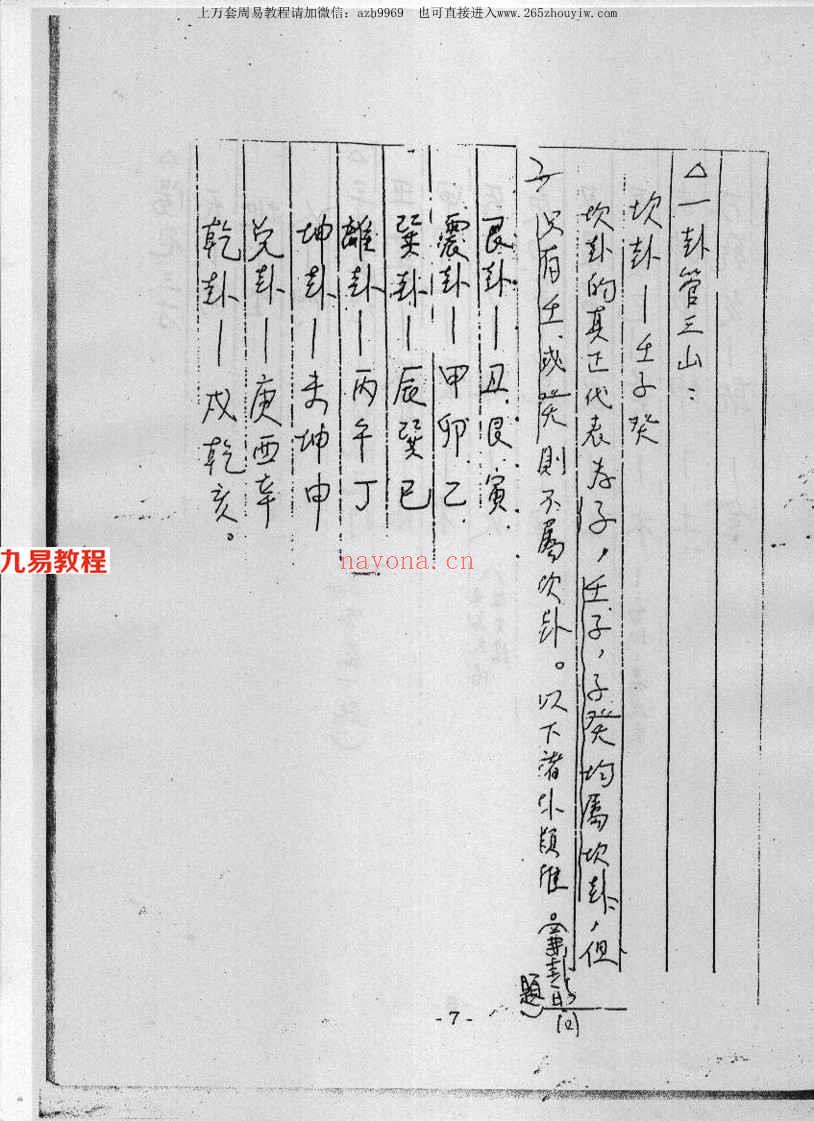 上万套周易教程请加微信: azh9969 也可直接进入www.265zhouyiw.com
△一卦管三山：
坎卦—壬子癸
坎卦的真正代表为子，壬子，子癸均属坎卦，但
只有壬或癸则不属坎卦。以下诸卦類推
題
(2)
艮卦—丑艮寅
震卦—甲卯乙
巽卦—辰巽巳
離卦—丙午丁
坤卦—未坤申
兌卦—庚酉辛
乾卦—戌乾亥。
九易教程
nayona.cn
- 7 -